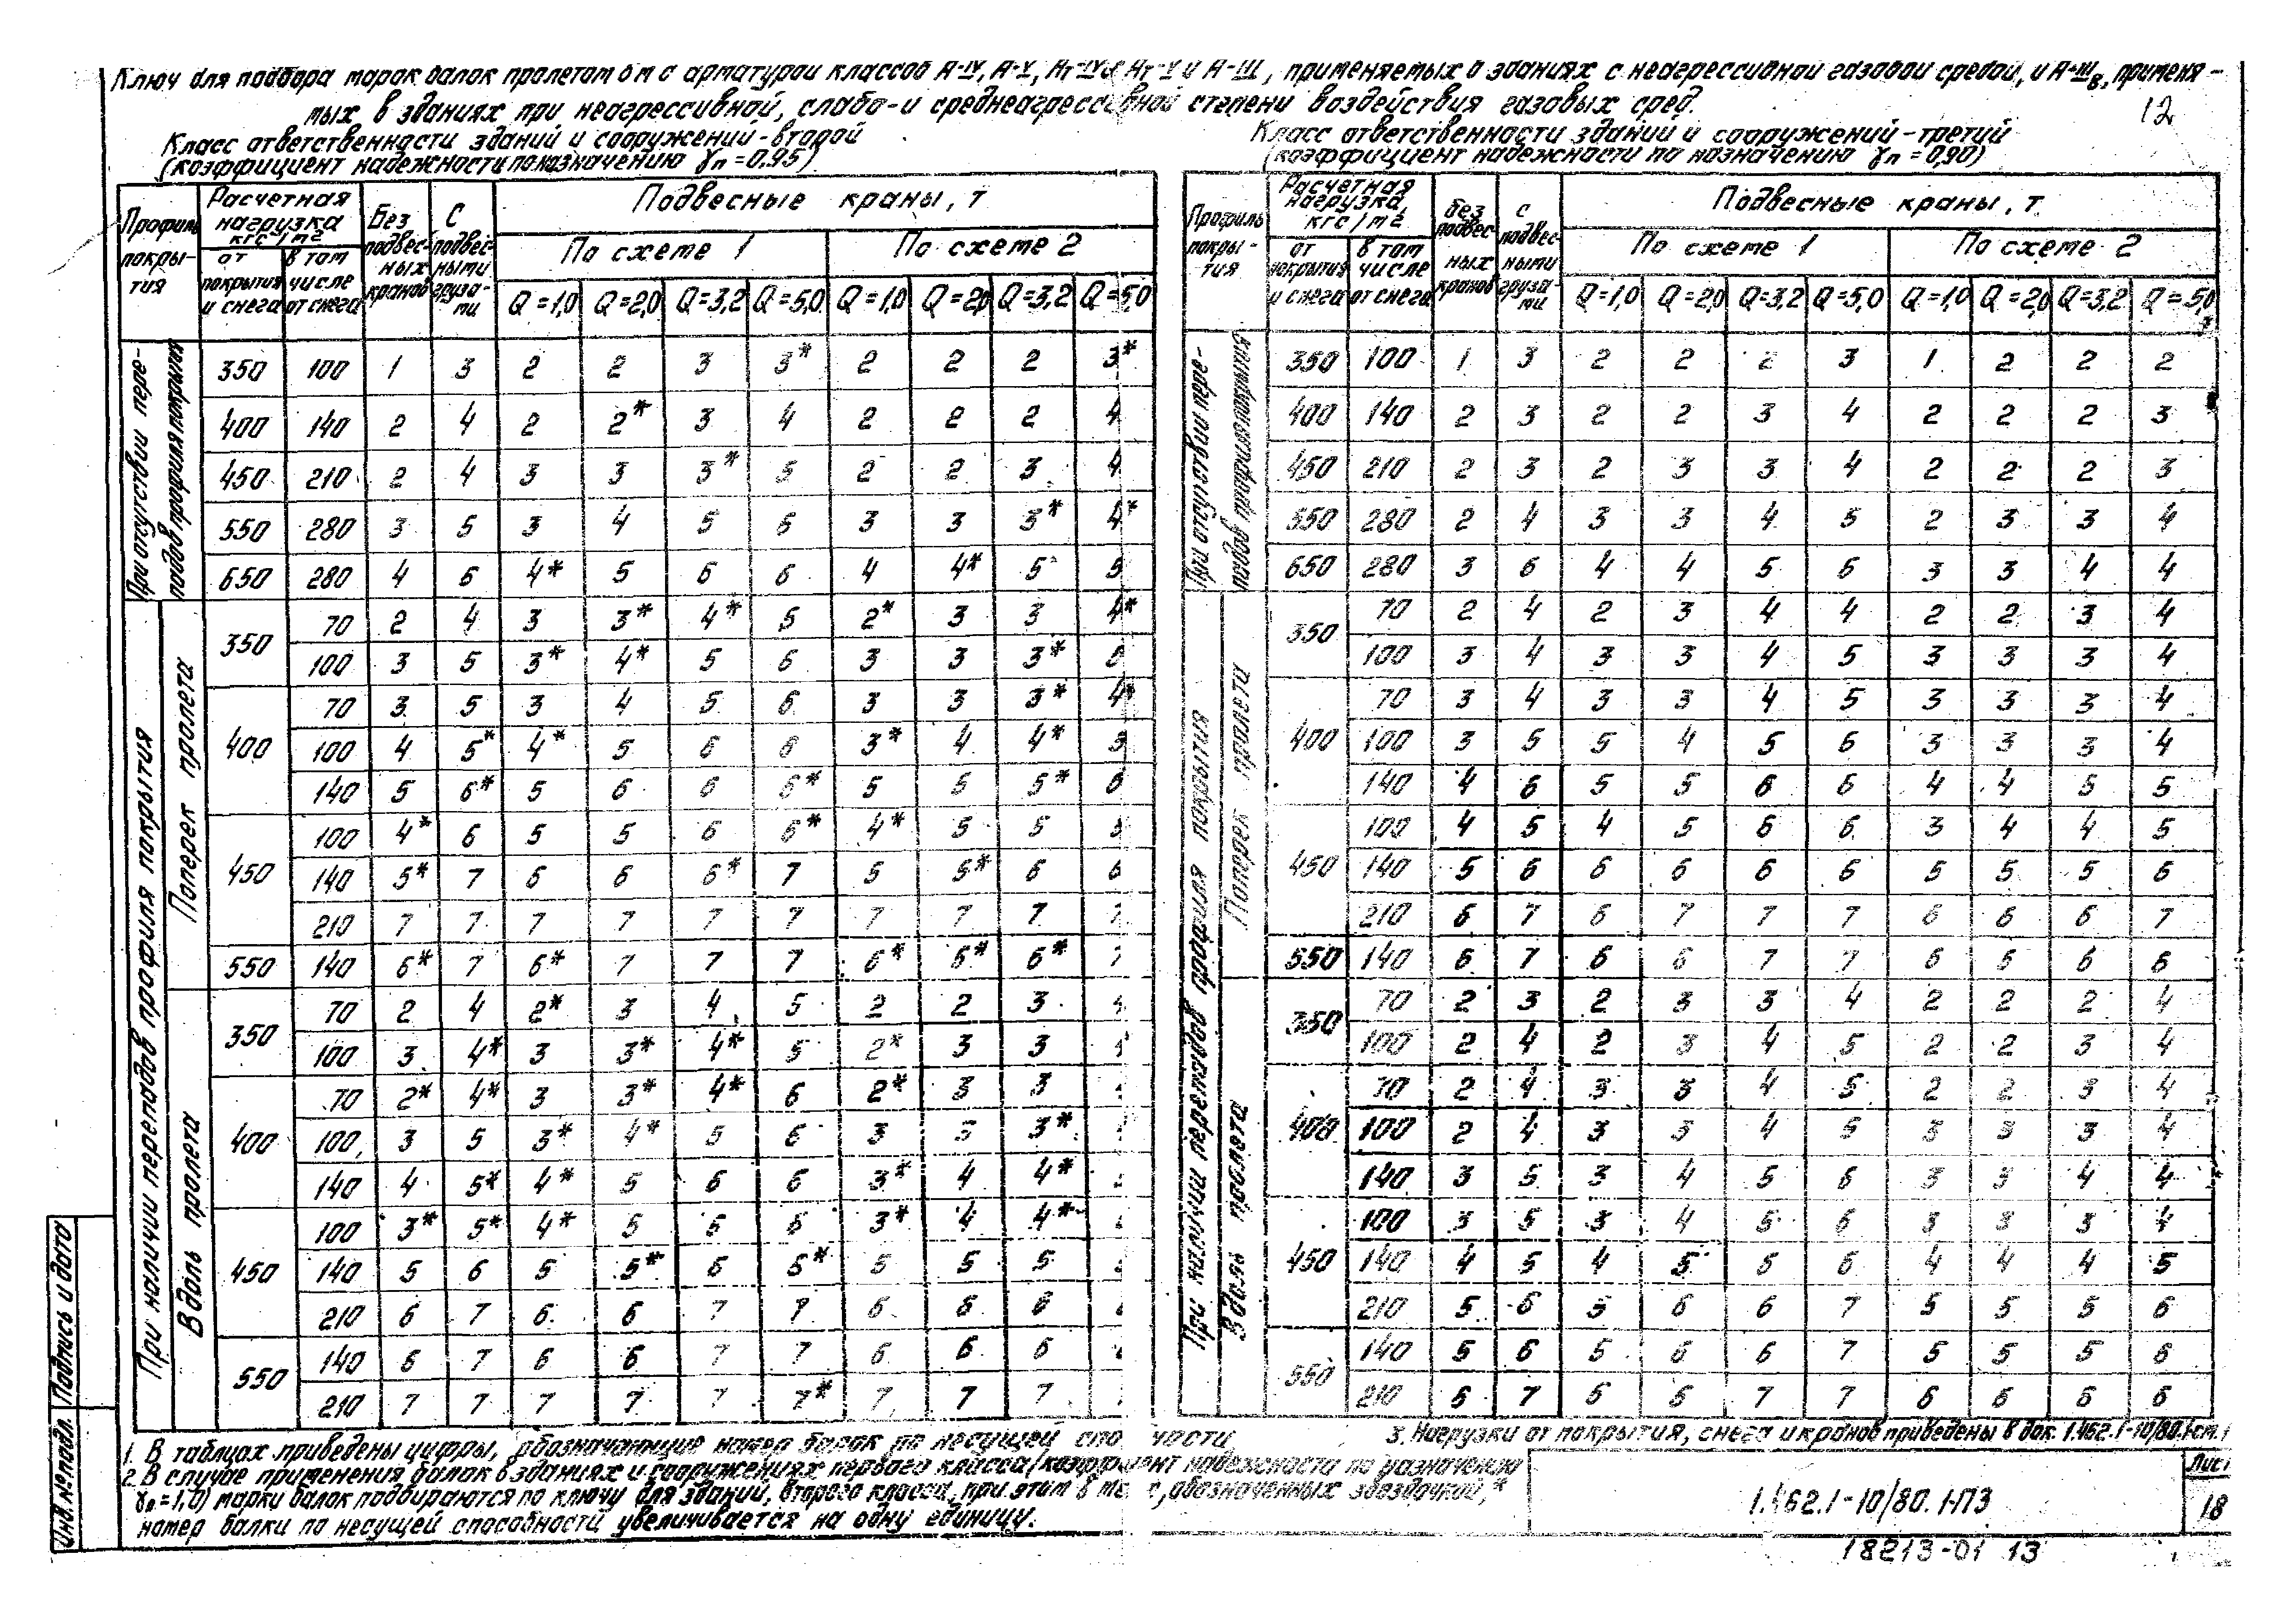 Ключ для подбора марок балок пролетом 6 м с арматурой классов А-IV, А-V, Ат-IV и Ат-V и А-III, применяемых в зданиях с неагрессивной газовой средой, и А-IIIв, применя-
мых в зданиях при неагрессивной, слабо- и среднеагрессивной степени воздействия газовых сред.
12
Класс ответственности зданий и сооружений - второй
(коэффициент надежности по назначению γп = 0,95)
Профиль покры-тия
Расчетная нагрузка кгс/м2
от покрытия и снега
в том числе от снега
Без подвес-ных кранов
С подвес-ными груза-ми
Подвесные краны, т
По схеме 1
По схеме 2
Q=1,0 Q=2,0 Q=3,2 Q=5,0 Q=1,0 Q=2,0 Q=3,2 Q=5,0
При отсутствии пере-падов профиля покрытия
350 100 1 3 2 2 3 3* 2 2 2 3*
400 140 2 4 2 2* 3 4 2 2 2 4
450 210 2 4 3 3 3* 5 2 2 3 4
550 280 3 5 3 4 5 6 3 3 3* 4*
650 280 4 6 4* 5 6 6 4 4* 5 5
При наличии перепадов профиля покрытия
Поперек пролета
350 70 2 4 3 3* 4* 5 2* 3 3 4*
100 3 5 3* 4* 5 6 3 3 3*
400 70 3 5 3 4 5 6 3 3 3* 4*
100 4 5* 4* 5 6 6 3* 4 4*
140 5 6* 5 6 6 6* 5 5 5* 6
450 100 4* 6 5 5 6 6* 4* 5 5
140 5* 7 6 6 6* 7 5 5* 6 6
210 7 7 7 7 7 7 7 7 7
550 140 6* 7 6* 7 7 7 6* 6* 6*
Вдоль пролета
350 70 2 4 2* 3 4 5 2 2 3
100 3 4* 3 3* 4* 5 2* 3 3
400 70 2* 4* 3 3* 4* 6 2* 3 3
100 3 5 3* 4* 5 6 3 3 3*
140 4 5* 4* 5 6 6 3* 4 4*
450 100 3* 5* 4* 5 6 3* 4 4*
140 5 6 5 5* 6 6* 5 5 5
210 6 7 6 6 7 7 6 6 6
550 140 6 7 6 6 7 7 6 6 6
210 7 7 7 7 7 7* 7 7 7
Класс ответственности зданий и сооружений - третий
(коэффициент надежности по назначению γп = 0,90)
Профиль покры-тия
Расчетная нагрузка, кгс/м2
от покрытия и снега
в том числе от снега
без подвес-ных кранов
с подвес-ными груза-ми
Подвесные краны, т.
По схеме 1
По схеме 2
Q=1,0 Q=2,0 Q=3,2 Q=5,0 Q=1,0 Q=2,0 Q=3,2 Q=5,0
При отсутствии пере-падов профиля покрытия
350 100 1 3 2 2 2 3 1 2 2 2
400 140 2 3 2 2 3 4 2 2 2 3
450 210 2 3 2 3 3 4 2 2 2 3
550 280 2 4 3 3 4 5 2 3 3 4
650 280 3 6 4 4 5 6 3 3 4 4
При наличии перепадов профиля покрытия
Поперек пролета
350 70 2 4 2 3 4 4 2 2 3 4
100 3 4 3 3 4 5 3 3 3 4
400 70 3 4 3 3 4 5 3 3 3 4
100 3 5 5 4 5 6 3 3 3 4
140 4 6 5 5 6 6 4 4 5 5
450 100 4 5 4 5 6 6 3 4 4 5
140 5 6 6 6 6 6 5 5 5 6
210 6 7 6 7 7 7 6 6 6 7
550 140 6 7 6 6 7 7 6 6 6 6
Вдоль пролета
350 70 2 3 2 3 3 4 2 2 2 4
100 2 4 2 3 4 5 2 2 3 4
400 70 2 4 3 3 4 5 2 2 3 4
100 2 4 3 3 4 5 3 3 3 4
140 3 5 3 4 5 6 3 3 4 4
450 100 3 5 3 4 5 6 3 3 3 4
140 4 5 4 5 5 6 4 4 4 5
210 5 6 5 6 6 7 5 5 5 6
550 140 5 6 5 6 6 7 5 5 5 6
210 6 7 6 6 7 7 6 6 6 6
1. В таблицах приведены цифры, обозначающие номер балок по несущей способности
2. В случае применения балок в зданиях и сооружениях первого класса (коэффициент надежности по назначению
γп = 1,0) марки балок подбираются по ключу для зданий второго класса, при этом в , обозначенных звездочкой,*
номер балки по несущей способности увеличивается на одну единицу.
3. Нагрузки от покрытия, снега и кранов приведены в док. 1.462.1-10/80.1
1.462.1-10/80.1-ПЗ
Лист
18
18213-01 13
Инв. № подл.
Подпись и дата